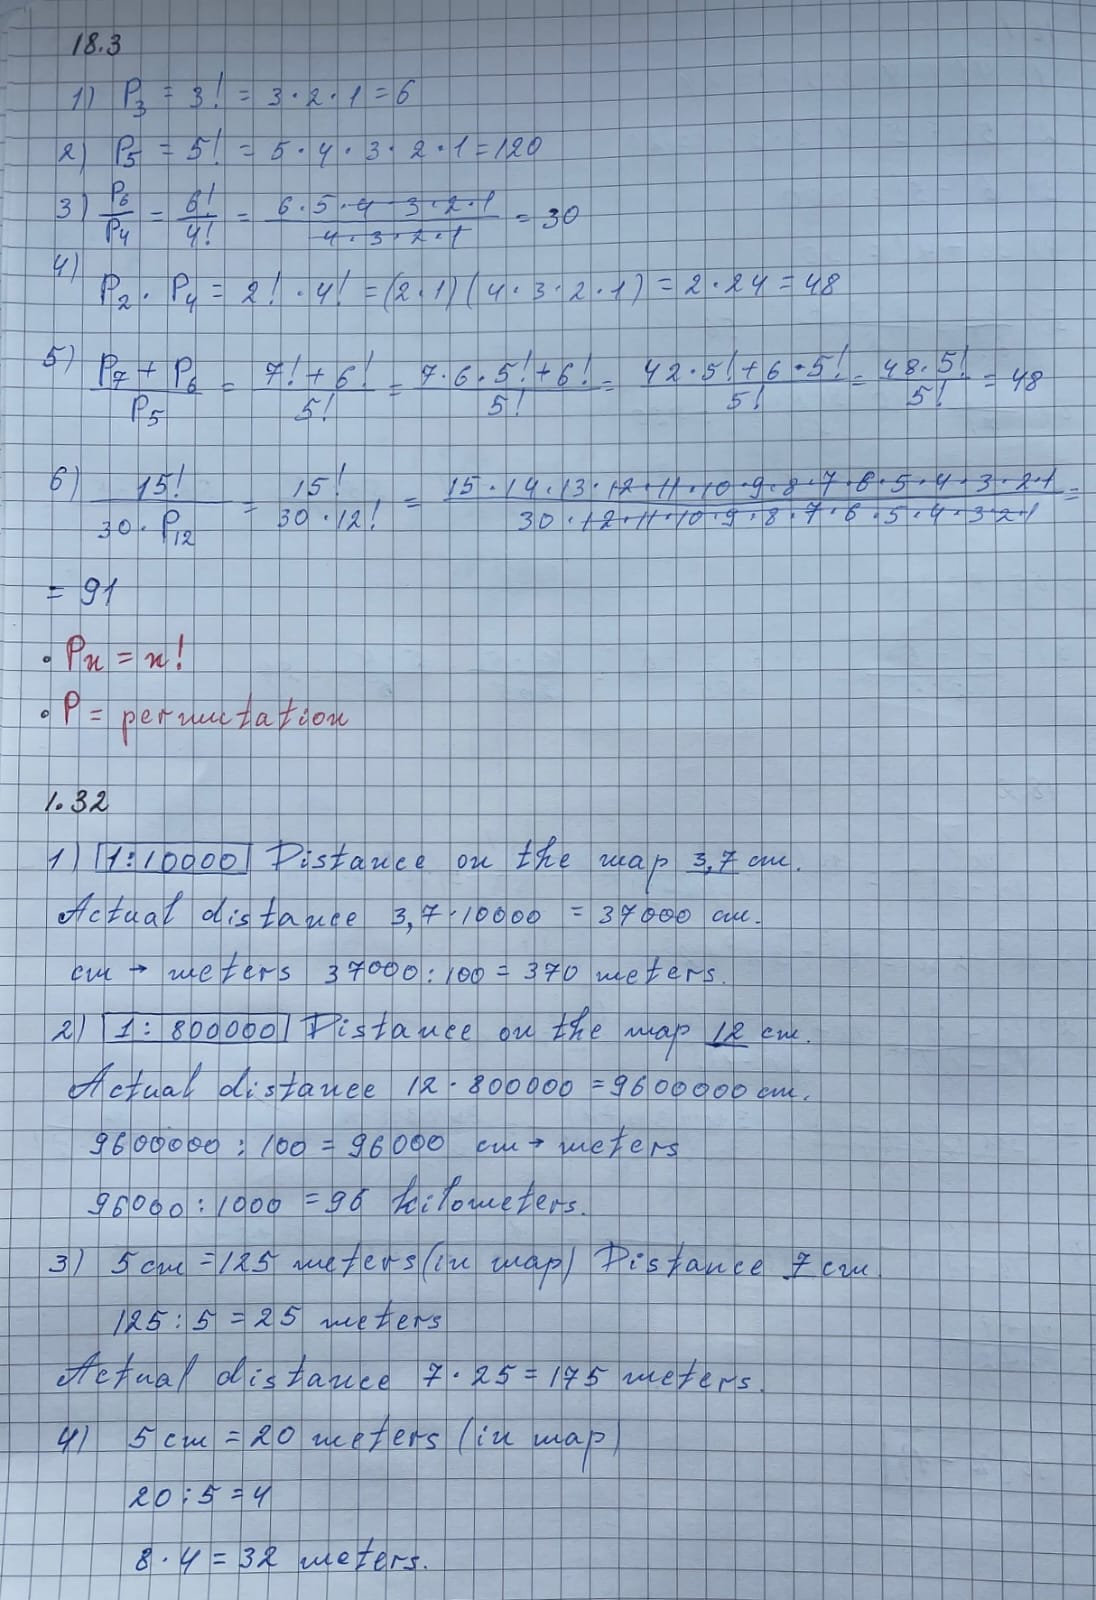 18.3
1) P3 = 3! = 3 · 2 · 1 = 6
2) P5 = 5! = 5 · 4 · 3 · 2 · 1 = 120
3) P6/P4 = 6!/4! = 6 · 5 · 4 · 3 · 2 · 1/4 · 3 · 2 · 1 = 30
4)
P2 · P4 = 2! · 4! = (2 · 1)(4 · 3 · 2 · 1) = 2 · 24 = 48
5) P7 + P6/P5 = 7! + 6!/5! = 7 · 6 · 5! + 6!/5! = 42 · 5! + 6 · 5!/5! = 48 · 5!/5! = 48
6) 15!/30 · P12 = 15!/30 · 12! = 15 · 14 · 13 · 12 · 11 · 10 · 9 · 8 · 7 · 6 · 5 · 4 · 3 · 2 · 1/30 · 12 · 11 · 10 · 9 · 8 · 7 · 6 · 5 · 4 · 3 · 2 · 1 =
= 91
• Px = x!
• P = permutation
1.32
1) 1:10000 Distance on the map 3,7 cm.
Actual distance 3,7 · 10000 = 37000 cm.
cm → meters 37000 : 100 = 370 meters.
2) 1 : 800000 Distance on the map 12 cm.
Actual distance 12 · 800000 = 9600000 cm.
9600000 : 100 = 96000 cm → meters
96000 : 1000 = 96 kilometers.
3) 5 cm = 125 meters (in map) Distance 7 cm.
125 : 5 = 25 meters
Actual distance 7 · 25 = 175 meters.
4) 5 cm = 20 meters (in map)
20 : 5 = 4
8 · 4 = 32 meters.